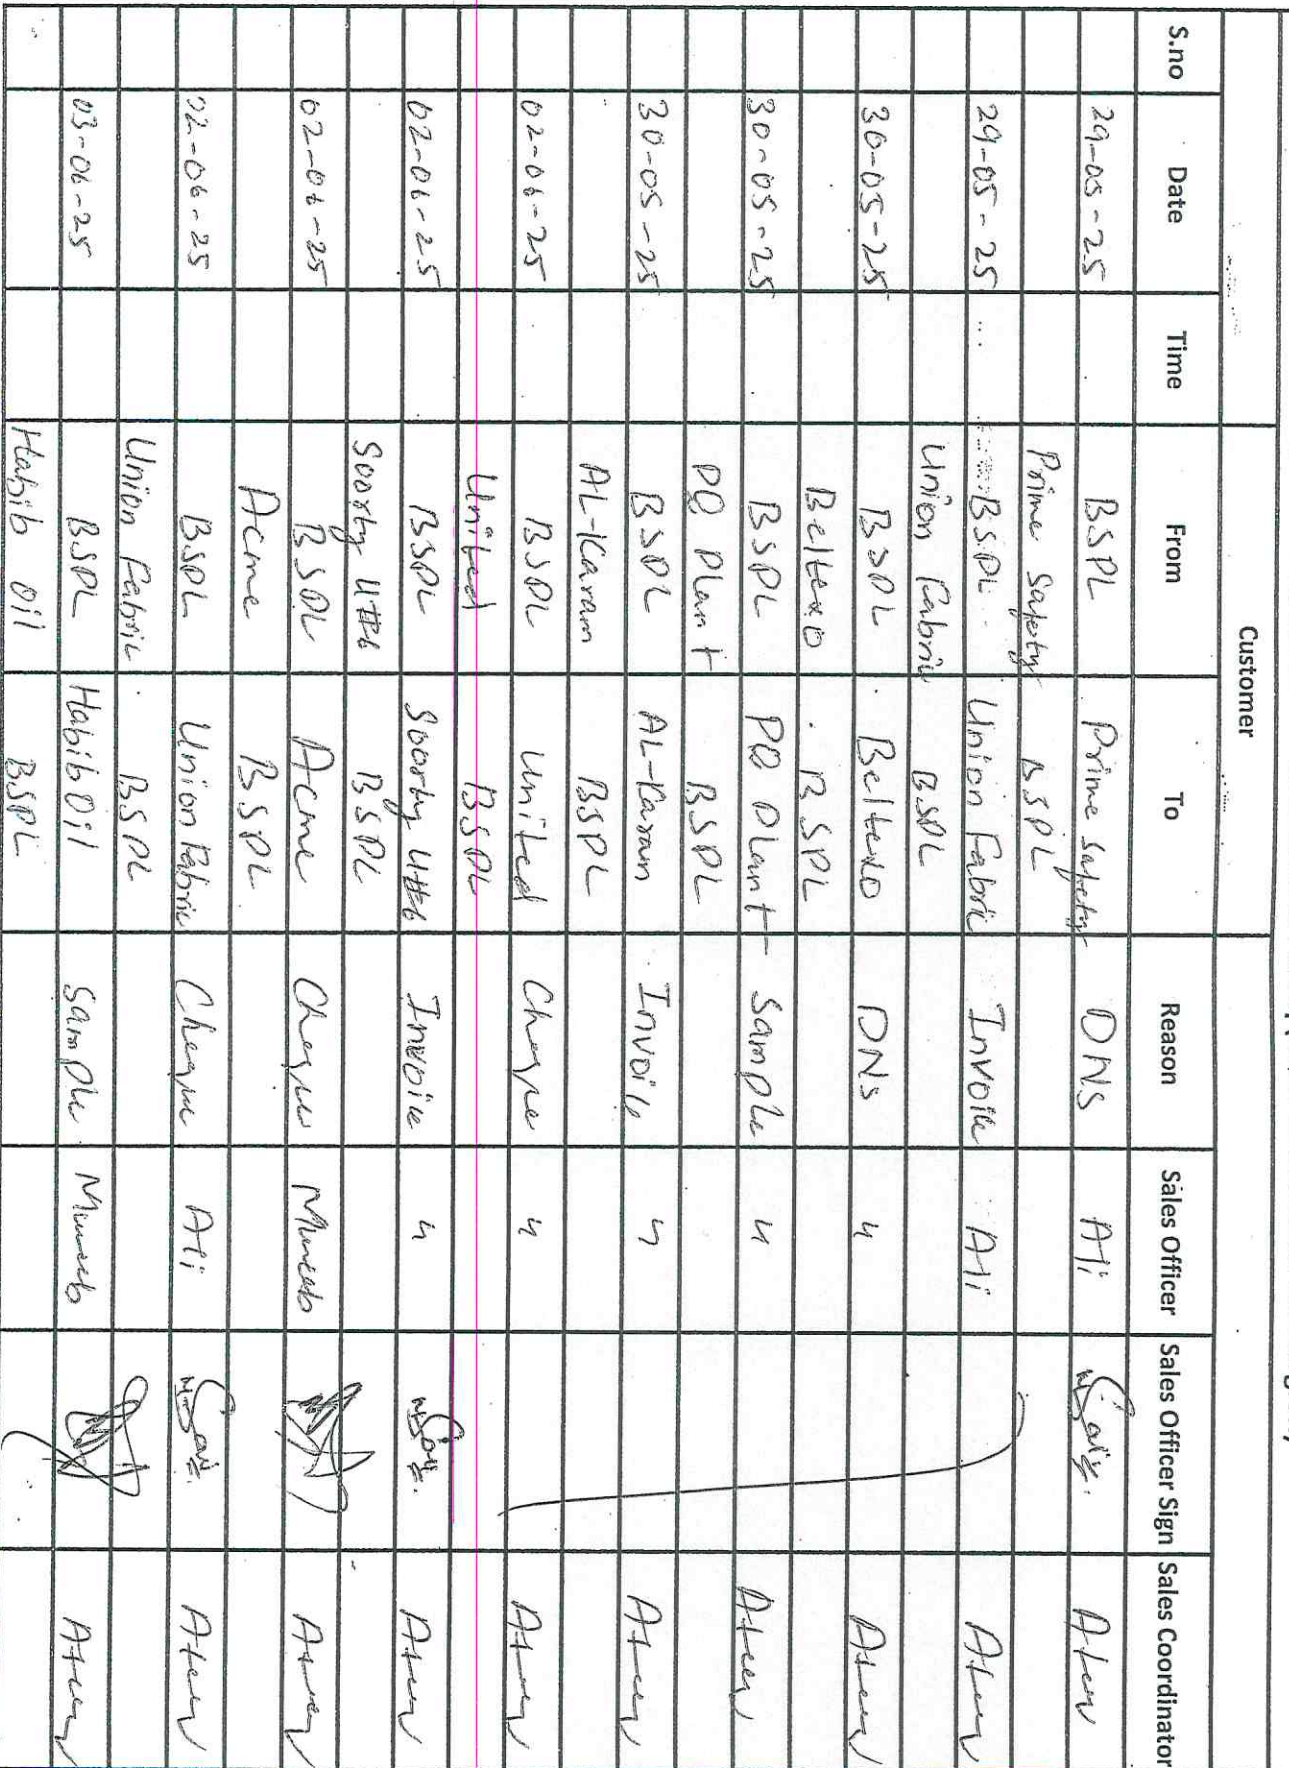 Customer
S.no Date Time From To Reason Sales Officer Sales Officer Sign Sales Coordinator
29-05-25 BSPL Prime Safety DNS Ali
Prime Safety BSPL
29-05-25 BSPL Union Fabric Invoice Ali
Union Fabric BSPL
30-05-25 BSPL Beltexo DNS "
Beltexo BSPL
30-05-25 BSPL PQ Plant Sample "
PQ Plant BSPL
30-05-25 BSPL AL-Karam Invoice "
AL-Karam BSPL
02-06-25 BSPL United Cheque "
United BSPL
02-06-25 BSPL Soorty U#6 Invoice "
Soorty U#6 BSPL
02-06-25 BSPL Acme Cheque Muneeb
Acme BSPL
02-06-25 BSPL Union Fabric Cheque Ali
Union Fabric BSPL
03-06-25 BSPL Habib Oil Sample Muneeb
Habib Oil BSPL